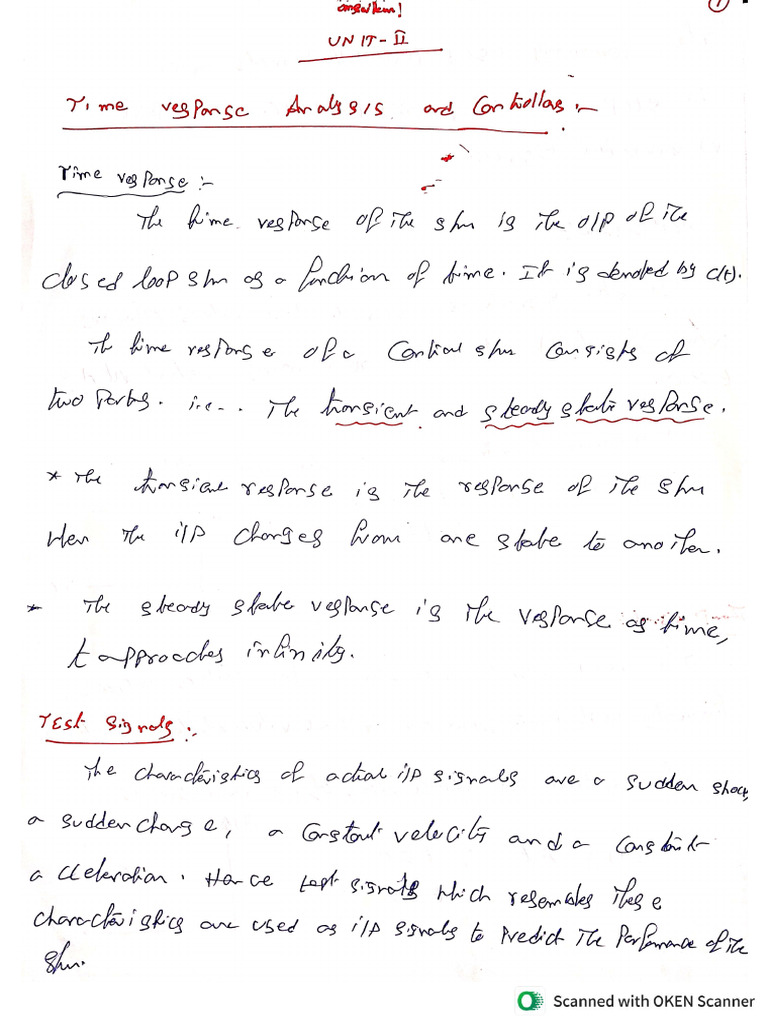 1
UNIT-II
Time response Analysis and Controllers :-
Time response :-
The time response of the s/m is the o/p of the
closed loop s/m as a function of time. It is denoted by c(t).
The time response of a Control s/m consists of
two Parts. i.e.. The transient and steady state response.
* The transient response is the response of the s/m
When the i/p changes from one state to another.
* The steady state response is the response as time,
t approaches infinity.
Test Signals :-
The characteristics of actual i/p signals are a sudden shock,
a sudden change, a Constant velocity and a Constant
acceleration. Hence test signals which resembles these
characteristics are used as i/p signals to Predict The Performance of the
s/m.
Scanned with OKEN Scanner